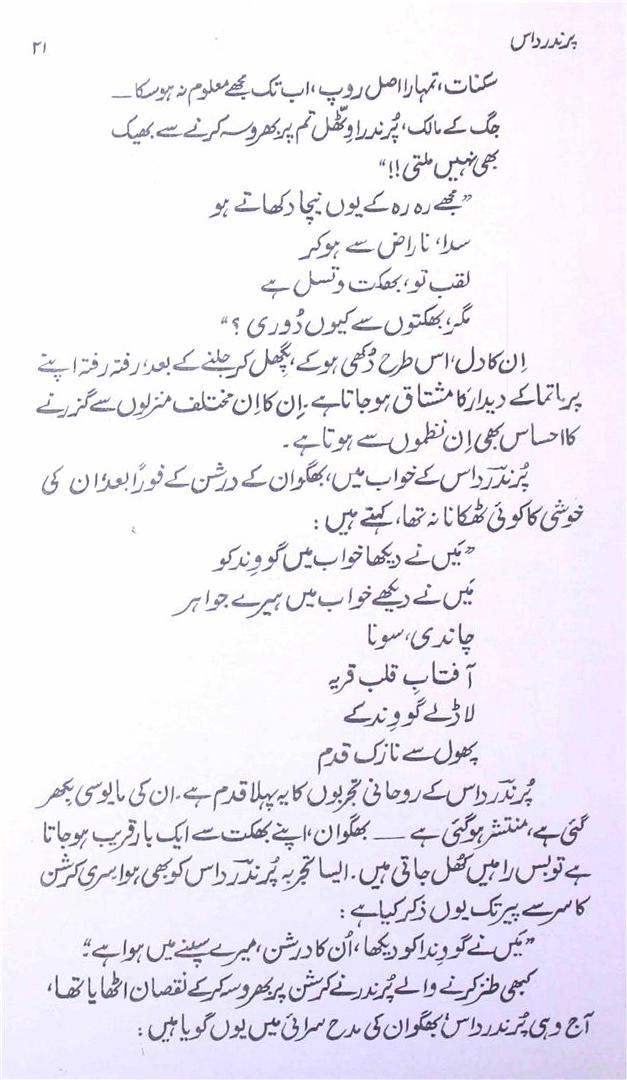 پرندرداس
۴۱
سکنات، تمہارا اصل روپ، اب تک مجھے معلوم نہ ہوسکا ــــ
جگ کے مالک، پُرندرا وِٹّھل تم پر بھروسہ کرنے سے بھیک
بھی نہیں ملتی!!"
"مجھے رہ رہ کے یوں نیچا دکھاتے ہو
سدا، ناراض سے ہوکر
لقب تو، بھکت وتسل ہے
مگر، بھکتوں سے کیوں دُوری ؟"
اِن کا دل، اس طرح دُکھی ہوکے، پگھل کر جلنے کے بعد، رفتہ رفتہ اپنے
پرماتما کے دیدار کا مشتاق ہوجاتا ہے۔ اِن کا اِن مختلف منزلوں سے گزرنے
کا احساس بھی اِن نظموں سے ہوتا ہے۔
پُرندرداس کے خواب میں، بھگوان کے درشن کے فوراً بعد، ان کی
خوشی کا کوئی ٹھکانا نہ تھا، کہتے ہیں :
"مَیں نے دیکھا خواب میں گووِند کو
مَیں نے دیکھے خواب میں ہیرے جواہر
چاندی، سونا
آفتابِ قلب قریہ
لاڈلے گووِند کے
پھول سے نازک قدم
پُرندرداس کے روحانی تجربوں کا یہ پہلا قدم ہے۔ ان کی مایوسی بکھر
گئی ہے، منتشر ہوگئی ہے ــــ بھگوان، اپنے بھکت سے ایک بار قریب ہوجاتا
ہے تو بس راہیں کُھل جاتی ہیں۔ ایسا تجربہ پُرندرداس کو بھی ہوا سری کرشن
کا سر سے پیر تک یوں ذکر کیا ہے :
"مَیں نے گووِندا کو دیکھا، اُن کا درشن، میرے سپنے میں ہوا ہے"
کبھی طنز کرنے والے پُرندر نے کرشن پر بھروسہ کرکے نقصان اٹھایا تھا،
آج وہی پُرندرداس بھگوان کی مدح سرائی میں یوں گویا ہیں :